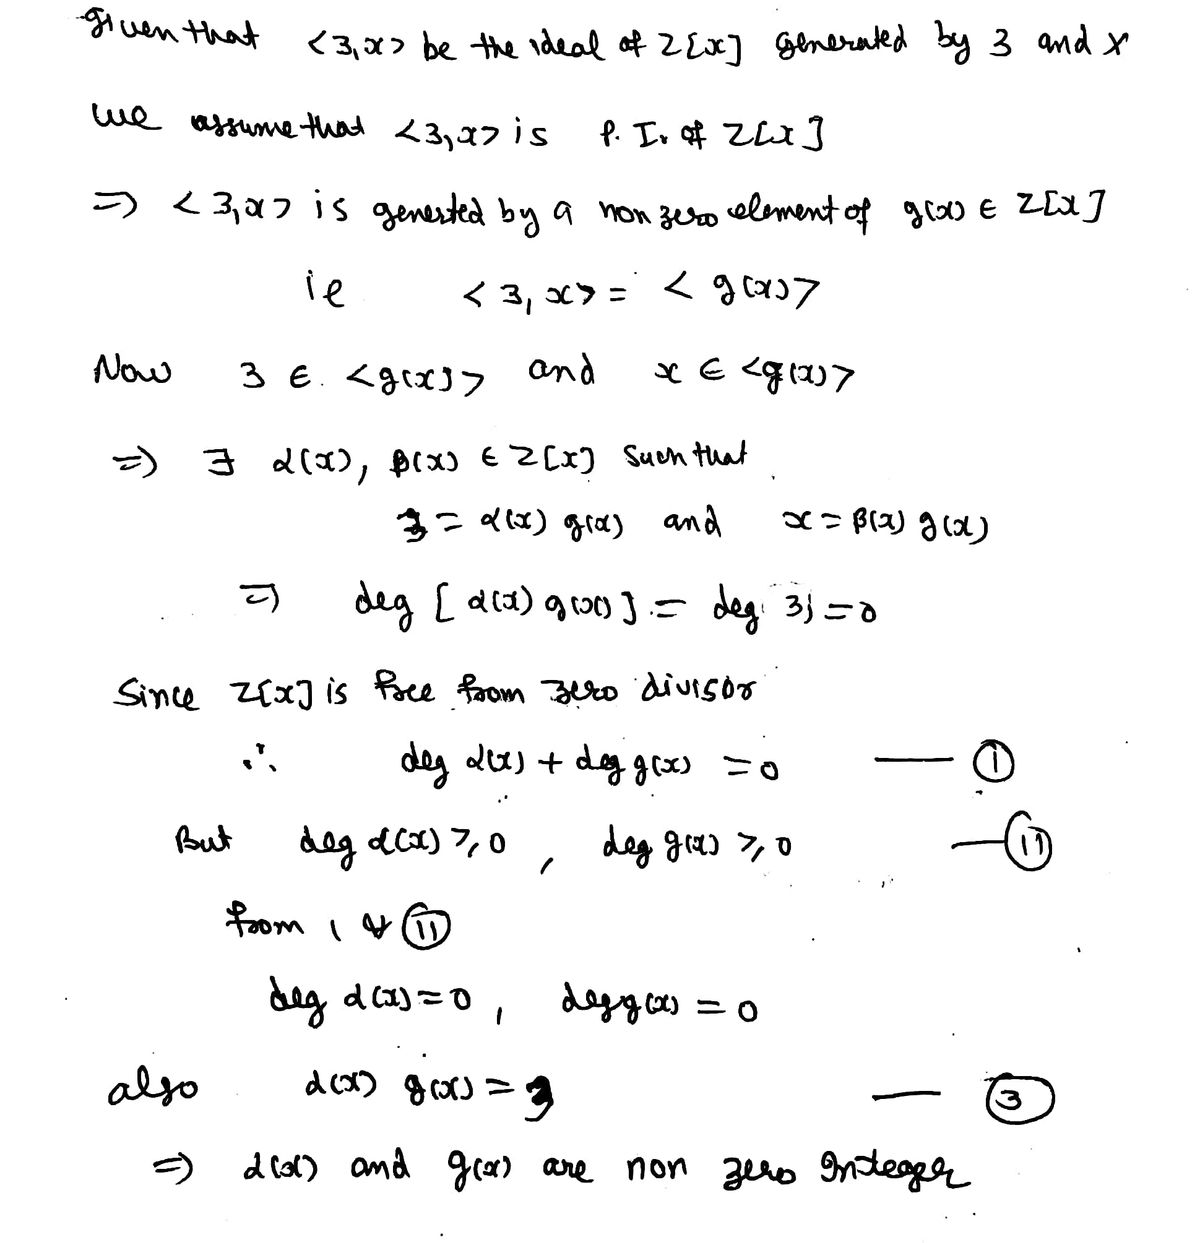 given that <3,x> be the ideal of Z[x] generated by 3 and x
we assume that <3,x> is P. I. of Z[x]
=> <3,x> is generted by a non zero element of g(x) ∈ Z[x]
ie <3, x> = < g(x)>
Now 3 ∈ <g(x)> and x ∈ <g(x)>
=> ∃ α(x), β(x) ∈ Z[x] such that
3 = α(x) g(x) and x = β(x) g(x)
=> deg [ α(x) g(x) ] = deg 3) = 0
Since Z[x] is free from zero divisor
∴ deg α(x) + deg g(x) = 0 — ①
But deg α(x) ≥ 0 , deg g(x) ≥ 0 — (11)
from 1 & (11)
deg α(x) = 0 , deg g(x) = 0
also α(x) g(x) = 3 — ③
=> α(x) and g(x) are non zero Integer